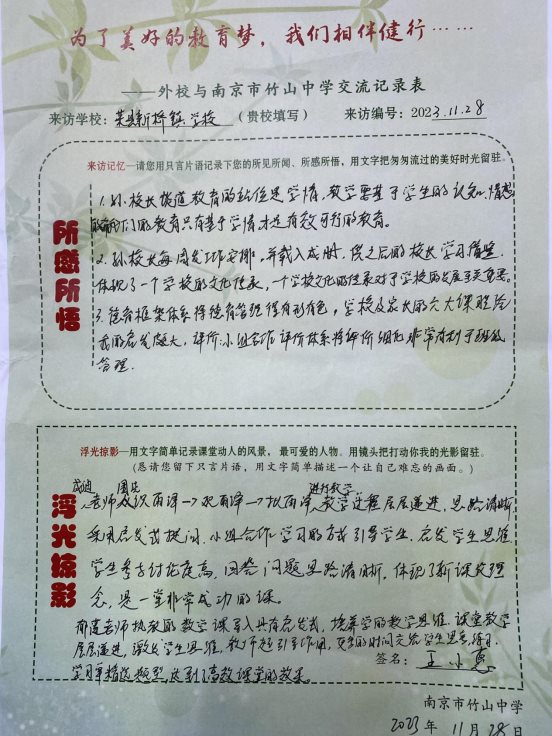 为了美好的教育梦，我们相伴健行……
——外校与南京市竹山中学交流记录表
来访学校：新桥镇学校（贵校填写） 来访编号：2023.11.28
来访记忆—请您用只言片语记录下您的所见所闻、所感所悟，用文字把匆匆流过的美好时光留驻。
所感所悟
1.孙校长报道教育的站位是学情，教学要基于学生的认知、情感
我们的教育只有基于学情才是有效可行的教育。
2.孙校长每周发工作安排，并载入成册，供之后的校长学习借鉴，
体现了一个学校的文化传承，一个学校文化的传承对于学校的发展至关重要。
3.德育框架体系将德育管理得有形有色，学校及家长的六大课程给
我的启发颇大，评价：小组合作评价体系将评价细化非常有利于班级
管理.
浮光掠影—用文字简单记录课堂动人的风景，最可爱的人物。用镜头把打动你我的光影留驻。
（恳请您留下只言片语，用文字简单描述一个让自己难忘的画面。）
浮光掠影
老师 识雨泽→ 雨泽→ 雨泽 进行教学，教学过程层层递进，思路清晰
采用启发式提问、小组合作学习的方式引导学生，启发学生思维
学生参与讨论度高，回答问题思路清晰，体现了新课改理
念，是一堂非常成功的课。
老师执教的数学课导入具有启发式，培养学的数学思维，课堂教学
层层递进，激发学生思维，教师起引导作用，更多的时间交给学生思考练习.
学习单精选题型，达到了高效课堂的效果.
签名：王小惠
南京市竹山中学
2023年11月28日